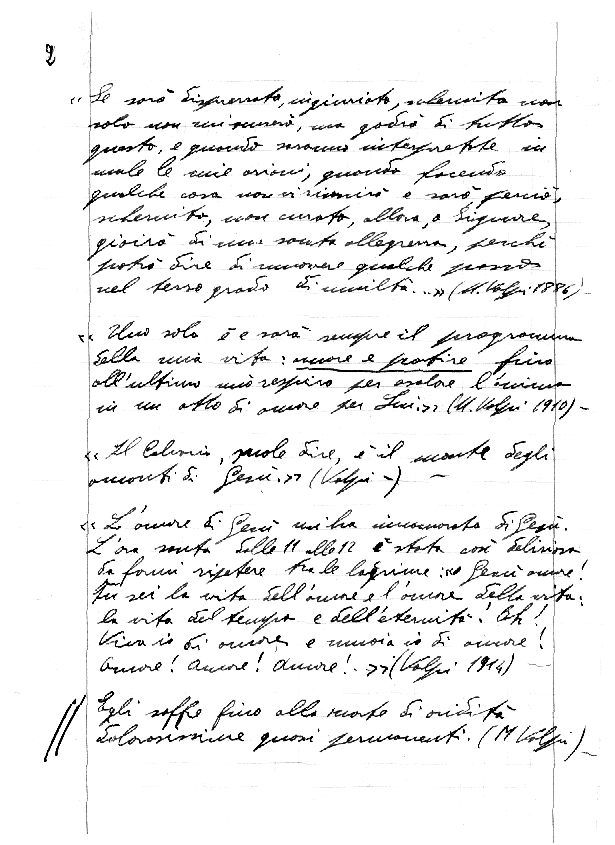 2
« Se sarò disprezzata, ingiuriata, schernita non
solo non mi scuserò, ma godrò di tutto
questo, e quando saranno interpretate in
male le mie azioni, quando facendo
qualche cosa non riuscirò e sarò, perciò,
schernita, non curata, allora, o Signore,
gioirò di una santa allegrezza, perchè
potrò dire di muovere qualche passo
nel terzo grado di umiltà...» (M. Volpi 1886) -
« Uno solo è e sarà sempre il programma
della mia vita: amare e patire fino
all'ultimo mio respiro per esalare l'anima
in un atto di amore per Lui.» (M. Volpi 1910) -
« Il Calvario, suole dire, è il monte degli
amanti di Gesù.» (Volpi -) -
« L'amore di Gesù mi ha innamorata di Gesù.
L'ora santa dalle 11 alle 12 è stata così deliziosa
da farmi ripetere tra le lagrime: « Gesù amore!
Tu sei la vita dell'amore e l'amore della vita:
la vita del tempo e dell'eternità! Oh!
Viva io di amore, e muoia io di amore!
Amore! Amore! Amore!..»» (Volpi 1914) -
Egli soffre fino alla morte di aridità
dolorosissime quasi permanenti. (M Volpi) -